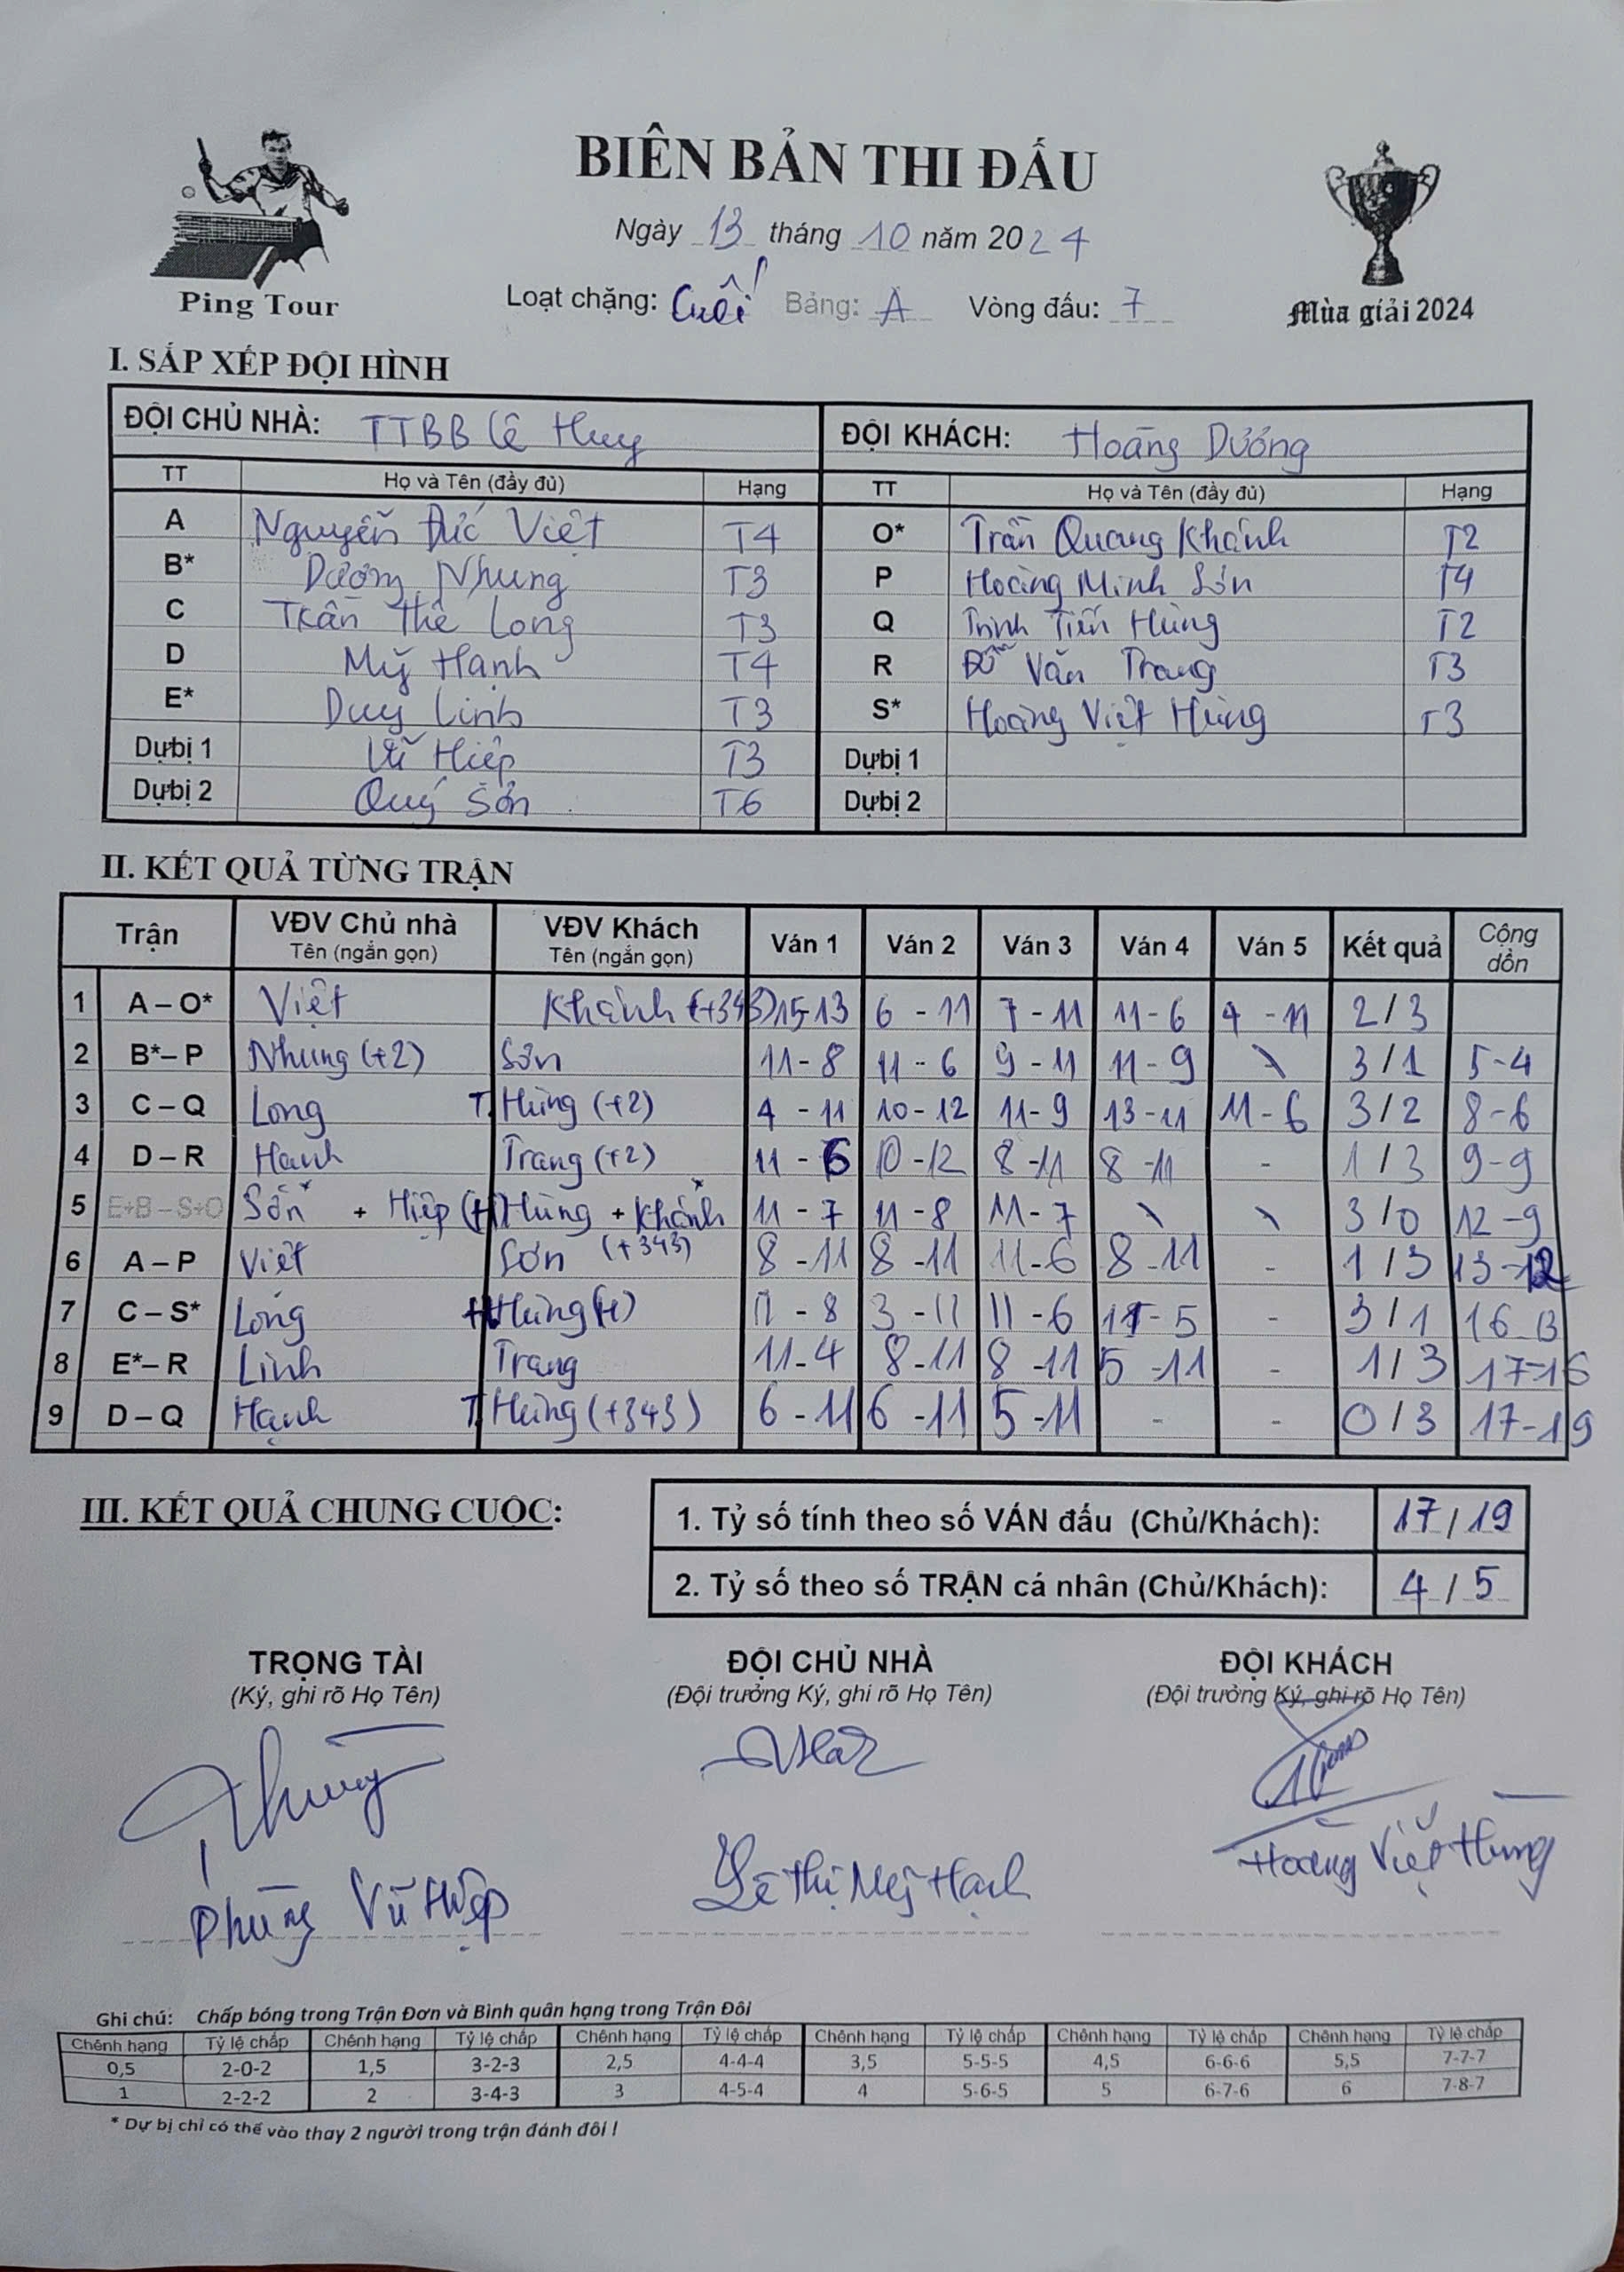 BIÊN BẢN THI ĐẤU
Ngày 13 tháng 10 năm 2024
Loạt chặng: Cuối Bảng: A Vòng đấu: 7
Ping Tour
Mùa giải 2024
I. SẮP XẾP ĐỘI HÌNH
ĐỘI CHỦ NHÀ: TTBB Lê Huy ĐỘI KHÁCH: Hoàng Dương
TT Họ và Tên (đầy đủ) Hạng TT Họ và Tên (đầy đủ) Hạng
A Nguyễn Đức Việt T4 O* Trần Quang Khánh T2
B* Dương Nhung T3 P Hoàng Minh Sơn T4
C Trần Thế Long T3 Q Trịnh Tiến Hùng T2
D Mỹ Hạnh T4 R Đỗ Văn Trang T3
E* Duy Linh T3 S* Hoàng Việt Hùng T3
Dự bị 1 Vũ Hiệp T3 Dự bị 1
Dự bị 2 Quý Sơn T6 Dự bị 2
II. KẾT QUẢ TỪNG TRẬN
Trận VĐV Chủ nhà VĐV Khách Ván 1 Ván 2 Ván 3 Ván 4 Ván 5 Kết quả Cộng dồn
Tên (ngắn gọn) Tên (ngắn gọn)
1 A – O* Việt Khánh (+343) 15-13 6 - 11 7 - 11 11 - 6 9 - 11 2 / 3
2 B* – P Nhung (+2) Sơn 11 - 8 11 - 6 9 - 11 11 - 9 \ 3 / 1 5-4
3 C – Q Long T. Hùng (+2) 4 - 11 10 - 12 11 - 9 13 - 11 11 - 6 3 / 2 8-6
4 D – R Hạnh Trang (+2) 11 - 6 10 - 12 8 - 11 8 - 11 - 1 / 3 9-9
5 E+B – S+O Sơn* + Hiệp Hùng + Khánh* 11 - 7 11 - 8 11 - 7 \ \ 3 / 0 12-9
6 A – P Việt Sơn (+343) 8 - 11 8 - 11 11 - 6 8 - 11 - 1 / 3 13-12
7 C – S* Long Hùng 11 - 8 3 - 11 11 - 6 11 - 5 - 3 / 1 16-13
8 E* – R Linh Trang 11 - 4 8 - 11 8 - 11 5 - 11 - 1 / 3 17-16
9 D – Q Hạnh T. Hùng (+343) 6 - 11 6 - 11 5 - 11 - - 0 / 3 17-19
III. KẾT QUẢ CHUNG CUỘC:
1. Tỷ số tính theo số VÁN đấu (Chủ/Khách): 17 / 19
2. Tỷ số theo số TRẬN cá nhân (Chủ/Khách): 4 / 5
TRỌNG TÀI ĐỘI CHỦ NHÀ ĐỘI KHÁCH
(Ký, ghi rõ Họ Tên) (Đội trưởng Ký, ghi rõ Họ Tên) (Đội trưởng Ký, ghi rõ Họ Tên)
Phùng Vũ Hiệp Lê Thị Mỹ Hạnh Hoàng Việt Hùng
Ghi chú: Chấp bóng trong Trận Đơn và Bình quân hạng trong Trận Đôi
Chênh hạng Tỷ lệ chấp Chênh hạng Tỷ lệ chấp Chênh hạng Tỷ lệ chấp Chênh hạng Tỷ lệ chấp Chênh hạng Tỷ lệ chấp Chênh hạng Tỷ lệ chấp
0,5 2-0-2 1,5 3-2-3 2,5 4-4-4 3,5 5-5-5 4,5 6-6-6 5,5 7-7-7
1 2-2-2 2 3-4-3 3 4-5-4 4 5-6-5 5 6-7-6 6 7-8-7
* Dự bị chỉ có thể vào thay 2 người trong trận đánh đôi !